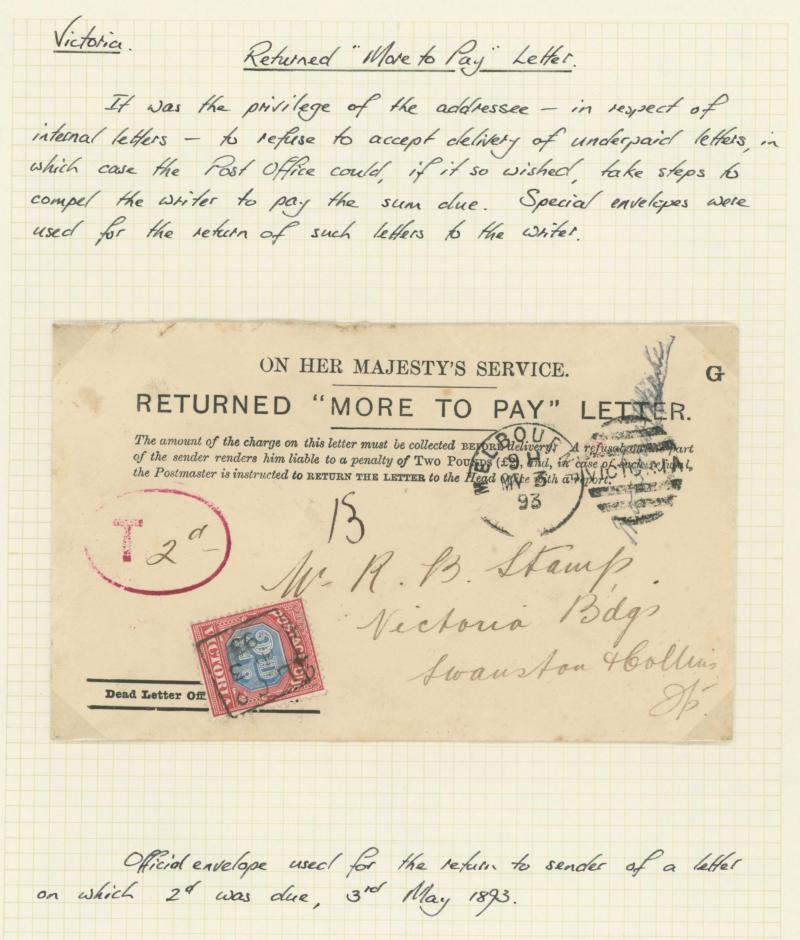 Victoria.
Returned "More to Pay" Letter.
It was the privilege of the addressee – in respect of
internal letters – to refuse to accept delivery of underpaid letters, in
which case the Post Office could, if it so wished, take steps to
compel the writer to pay the sum due. Special envelopes were
used for the return of such letters to the writer.
ON HER MAJESTY'S SERVICE.
G
RETURNED "MORE TO PAY" LETTER.
The amount of the charge on this letter must be collected BEFORE delivery. A refusal on the part
of the sender renders him liable to a penalty of TWO POUNDS (£2), and, in case of such refusal,
the Postmaster is instructed to RETURN THE LETTER to the Head Office with a report.
MELBOU
9 H
MY 3
93
VICTORIA
T 2d
Mr R. B. Stamp.
Victoria Bdgs
Swanston & Collins
St.
VICTORIA
POSTAGE DU
Dead Letter Off
Official envelope used for the return to sender of a letter
on which 2d was due, 3rd May 1893.